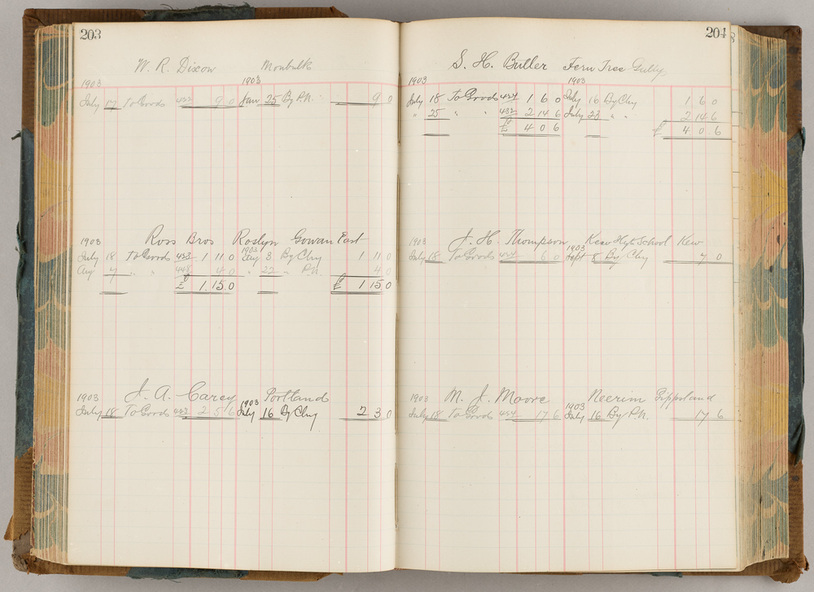 203
W. R. Dixon Monbulk
1903 1903
July 17 To Goods 433 9 0 Jan 25 By P.N. 9 0
1903 Ross Bros Roslyn Gowan East
July 18 To Goods 433 1 11 0 1903 Aug 3 By Chq 1 11 0
Aug 7 " " 448 4 0 " 22 " P.N. 4 0
£ 1 15 0 £ 1 15 0
1903 J. A. Carey 1903 Portland
July 18 To Goods 433 2 5 6 July 16 By Chq 2 3 0
204
S. H. Butler Fern Tree Gully
1903 1903
July 18 To Goods 434 1 6 0 July 16 By Chq 1 6 0
" 25 " " 437 2 14 6 July 23 " " 2 14 6
£ 4 0 6 £ 4 0 6
1903 J. H. Thompson Kew High School Kew
July 18 To Goods 434 6 0 1903 Sept 8 By Chq 7 0
1903 M. J. Moore 1903 Neerim Gippsland
July 18 To Goods 434 17 6 July 16 By P.N. 17 6